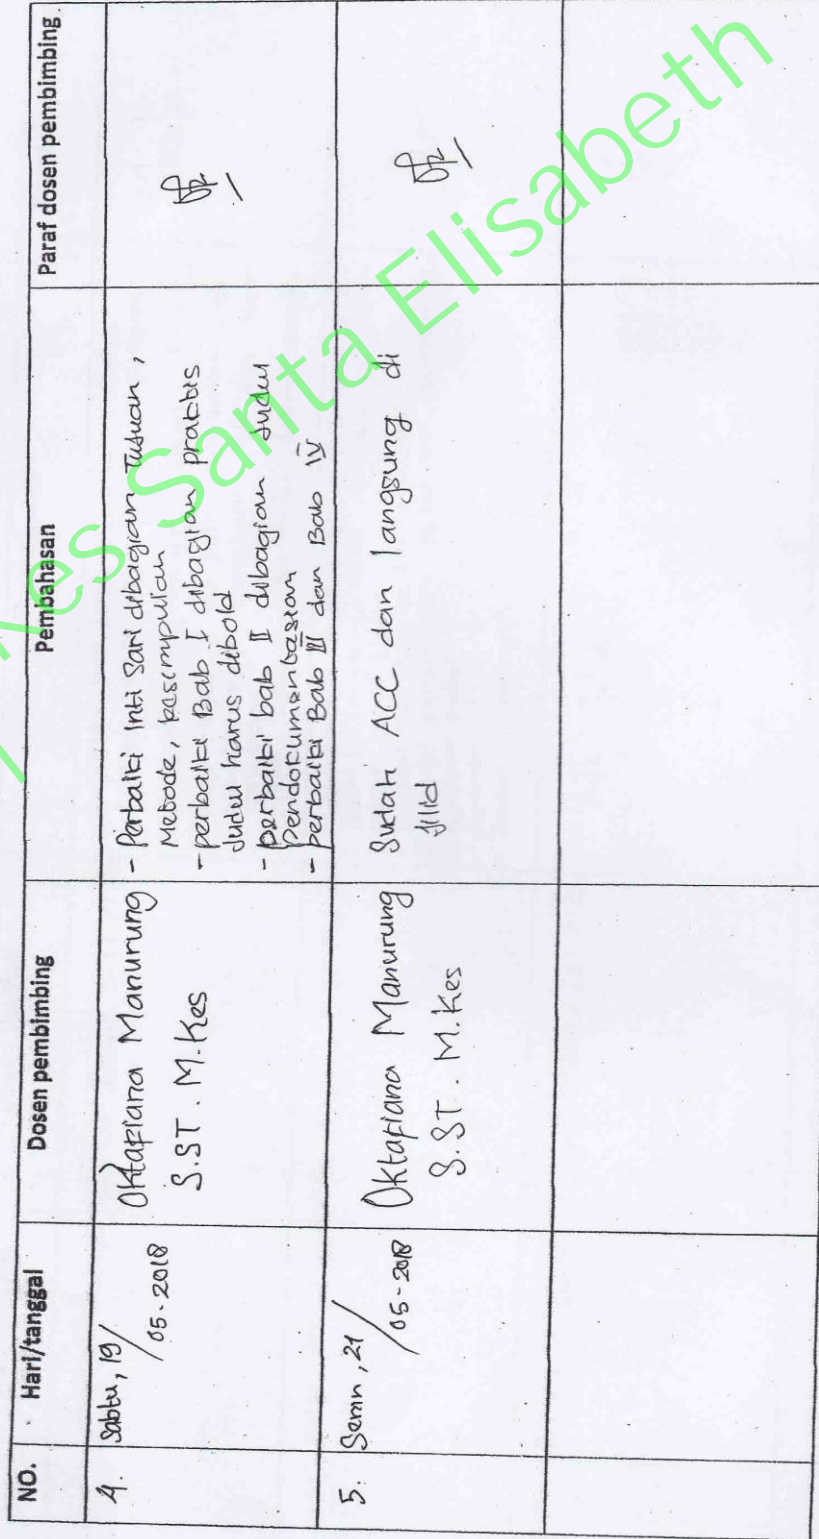 NO. Hari/tanggal Dosen pembimbing Pembahasan Paraf dosen pembimbing
4. Sabtu, 19/05-2018
Oktafiana Manurung
S.ST. M.Kes
- Perbaiki Inti Sari dibagian Tujuan,
Metode, kesimpulan
- perbaiki Bab I dibagian praktis
Judul harus dibold
- perbaiki bab II dibagian Judul
Pendokumentasian
- perbaiki Bab III dan Bab IV
5. Senin, 21/05-2018
Oktafiana Manurung
S.ST. M.Kes
Sudah ACC dan langsung di
jilid
es Santa Elisabeth